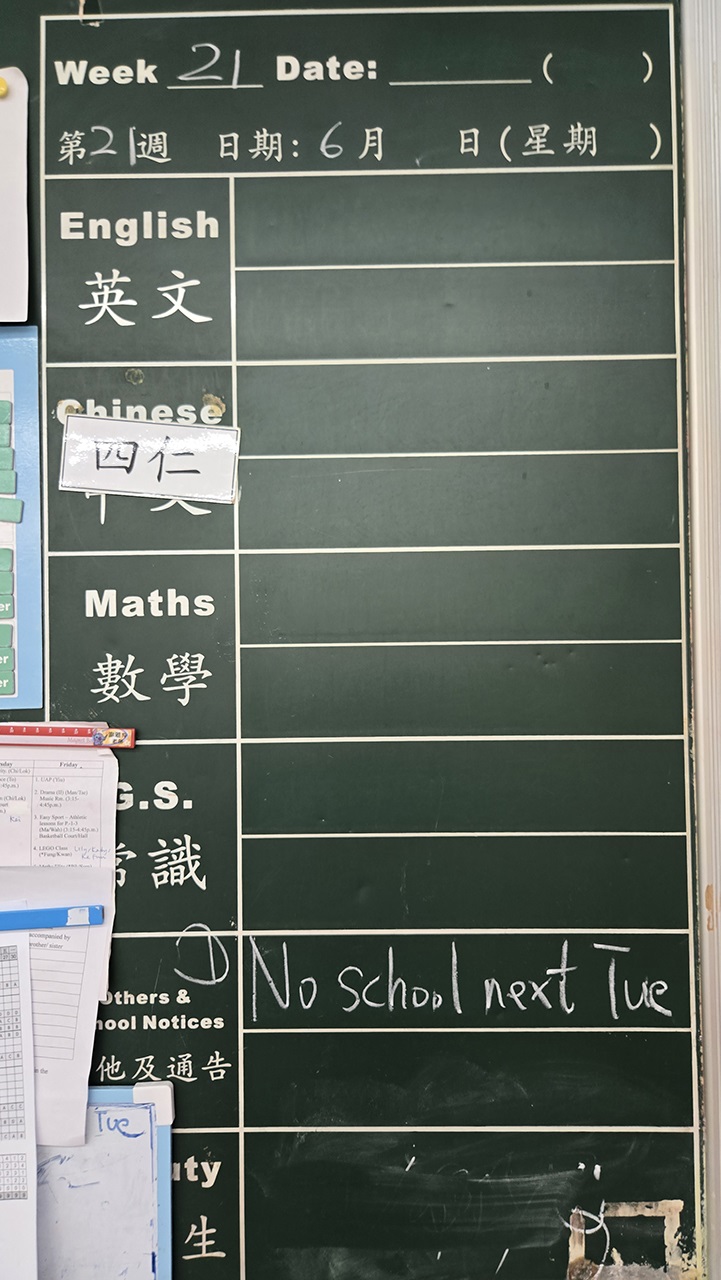 Week 21 Date: ______ ( )
第21週 日期: 6月 日(星期 )
English
英文
Chinese
四仁
Maths
數學
G.S.
常識
① No school next Tue
Others &
School Notices
他及通告
Tue
uty
生
Friday
1. CAP (Yiu)
2. Drama (II) (Man/Tsz)
Music Rm. (3:15-
4:45p.m.)
3. Easy Sport - Athletic
lessons for P.1-3
(Ma/Wah) (3:15-4:45p.m.)
Basketball Court/Hall
4. LEGO Class
(*Fung/Kwan)
accompanied by